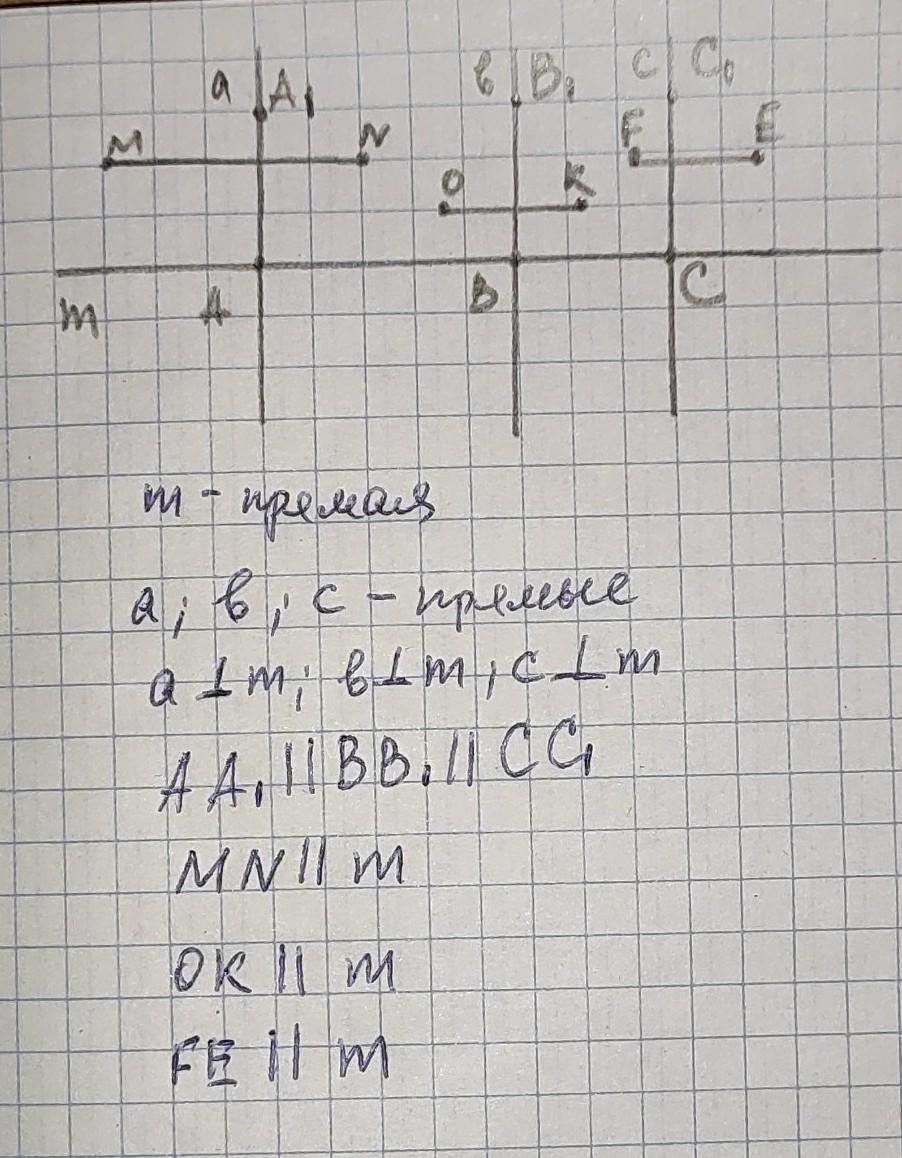 a A₁ в B₁ c C₁
M N F E
O K
m A B C
m - прямая
a; в; c - прямые
a⊥m; в⊥m; c⊥m
AA₁||BB₁||CC₁
MN||m
OK || m
FE || m